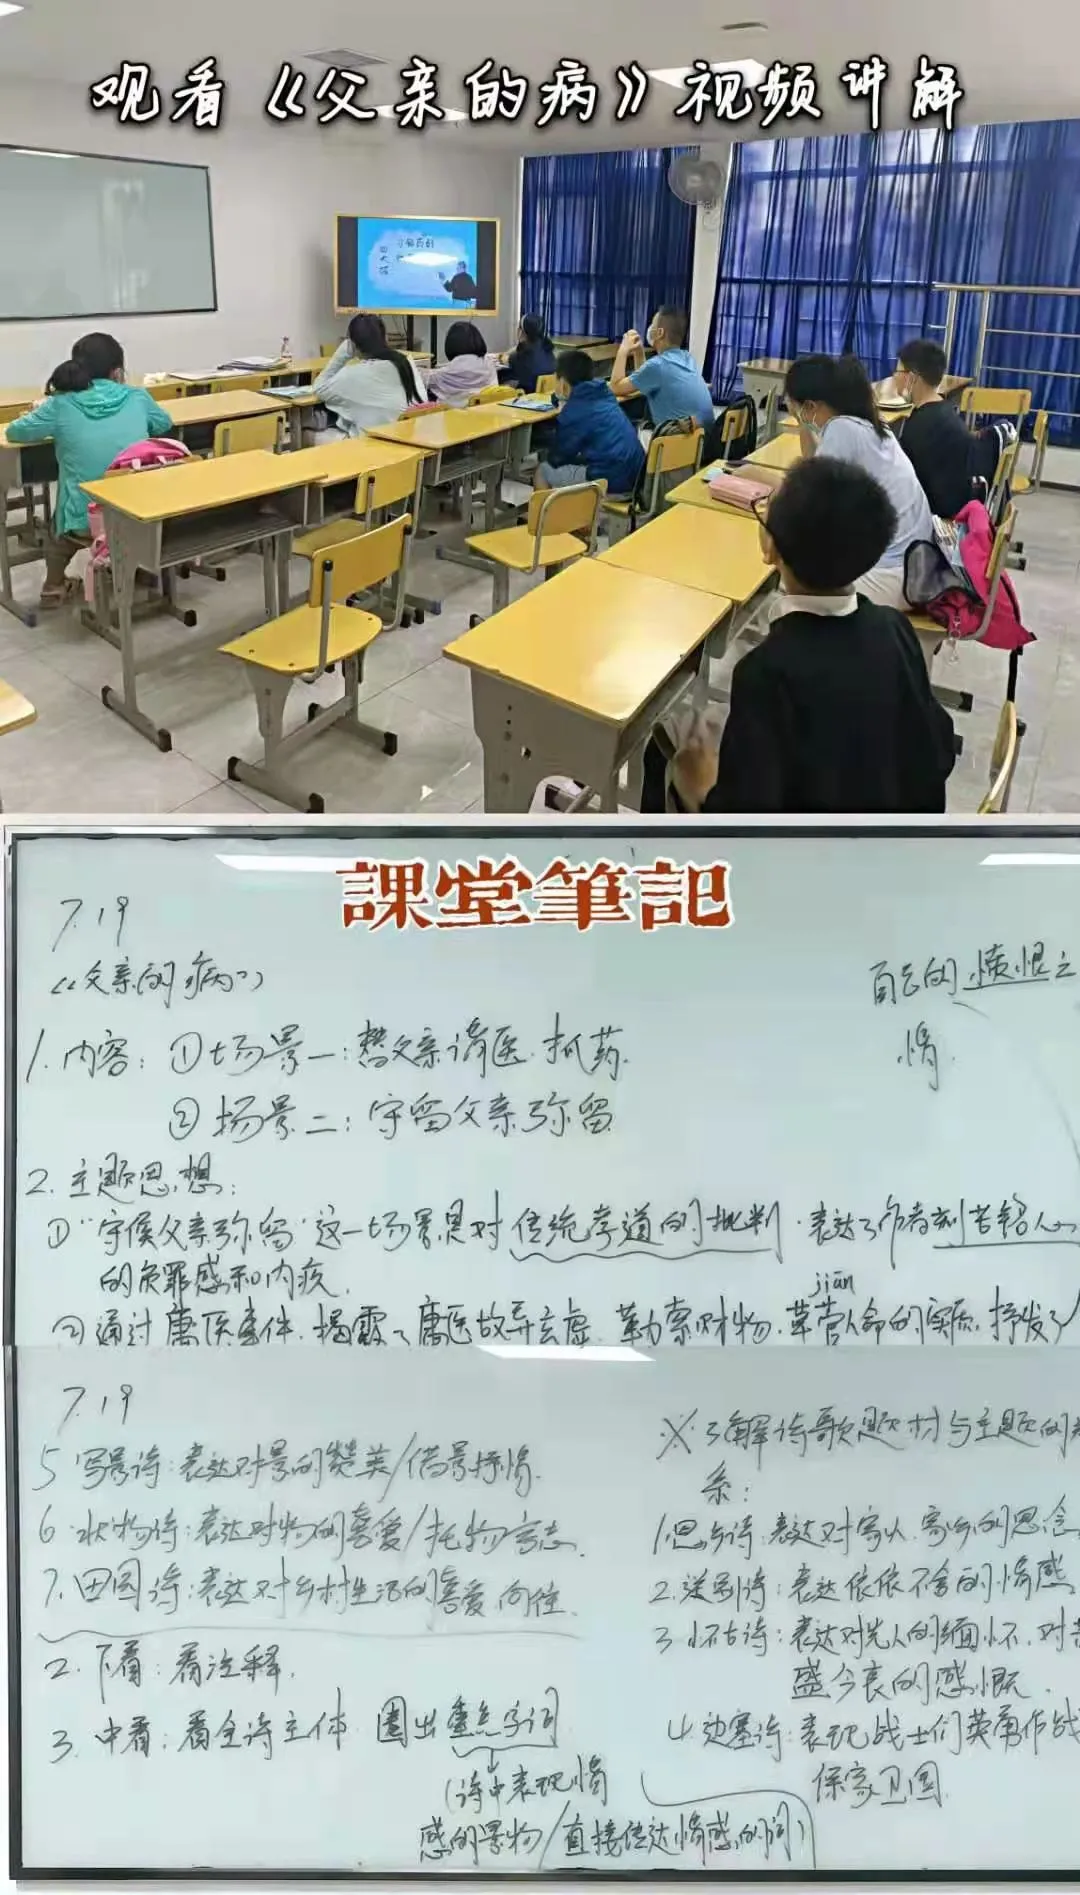 观看《父亲的病》视频讲解
課堂筆記
7.19
《父亲的病》
1.内容:①场景一:替父亲请医.抓药.
②场景二:守留父亲弥留
2.主题思想:
①"守侯父亲弥留"这一场景是对传统孝道的批判.表达了作者刻苦铭心
的负罪感和内疚.
jiān
②通过庸医事件.揭露了庸医故弄玄虚.勒索财物.草菅人命的实质.抒发了
自己的愤恨之
情.
7.19
5 写景诗:表达对景的赞美/借景抒情.
6.状物诗:表达对物的喜爱/托物言志.
7.田园诗:表达对乡村生活的喜爱,向往.
2.下看:看注释.
3.中看:看全诗主体.圈出重点字词
(诗中表现情
感的景物/直接传达情感的词)
※了解诗歌题材与主题的
系:
1.思乡诗.表达对家人.家乡的思念
2.送别诗:表达依依不舍的情感
3 怀古诗:表达对先人的缅怀.对昔
盛今衰的感慨.
4.边塞诗:表现战士们英勇作战
保家卫国.